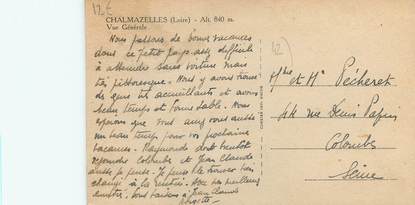 12€
CHALMAZELLES (Loire) - Alt. 840 m.
Vue Générale
Nous passons de bonnes vacances
dans ce petit pays assez difficile
à atteindre sans voiture mais
très pittoresque. Nous y avons trouvé
des gens très accueillants et avons
beau temps et bonne table. Nous
espérons que vous avez vous aussi
un beau temps pour vos prochaines
vacances. Raymonde doit bientôt
Colombes et Jean Claude
aussi je pense. Je pense le trouver bien
changé à la rentrée. Avec nos meilleures
amitiés. Bons baisers à Jean Claude
42
Mme et Mr Pécheret
44 rue Denis Papin
Colombes
Seine